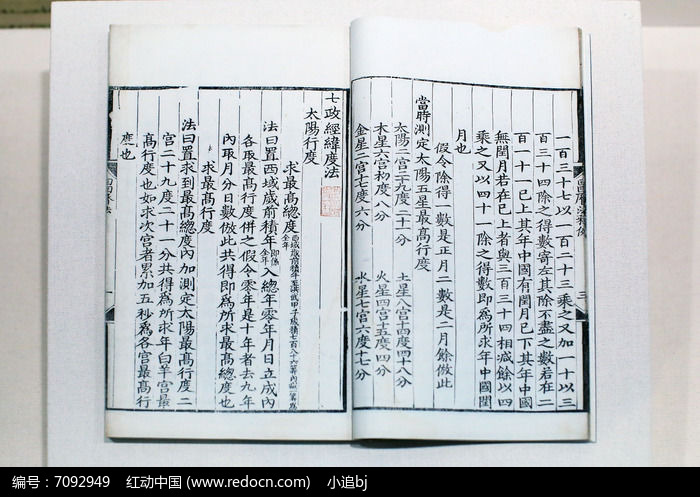 一百三十七以一百二十三乘之又加一十以三
百三十四除之得數寄左其除不盡之數若在二
百一十一已上其年中國有閏月已下其年中國
無閏月若在已上者與三百三十四相减餘以四
乘之又以四十一除之得數即為所求年中國閏
月也
假令除得一數是正月二數是二月餘倣此
當時測定太陽五星最髙行度
太陽二宫二九度二十一分
土星八宫十四度四十八分
木星六宫初度八分
火星四宫十五度四分
金星二宫十七度六分
水星七宫六度十七分
七政經緯度法
太陽行度
求最髙總度
法曰置西域歳前積年即係全年入總年零年月日立成内
各取最髙行度併之假令零年是十年者去九年
内取月分日數倣此共得即為所求最髙總度也
求最髙行度
法曰置求到最髙總度内加測定太陽最髙行度二
宫二十九度二十一分共得為所求年白羊宫最
髙行度也如求次宫者累加五秒為各宫最髙行
度也
编号：7092949 红动中国 (www.redocn.com) 小追bj